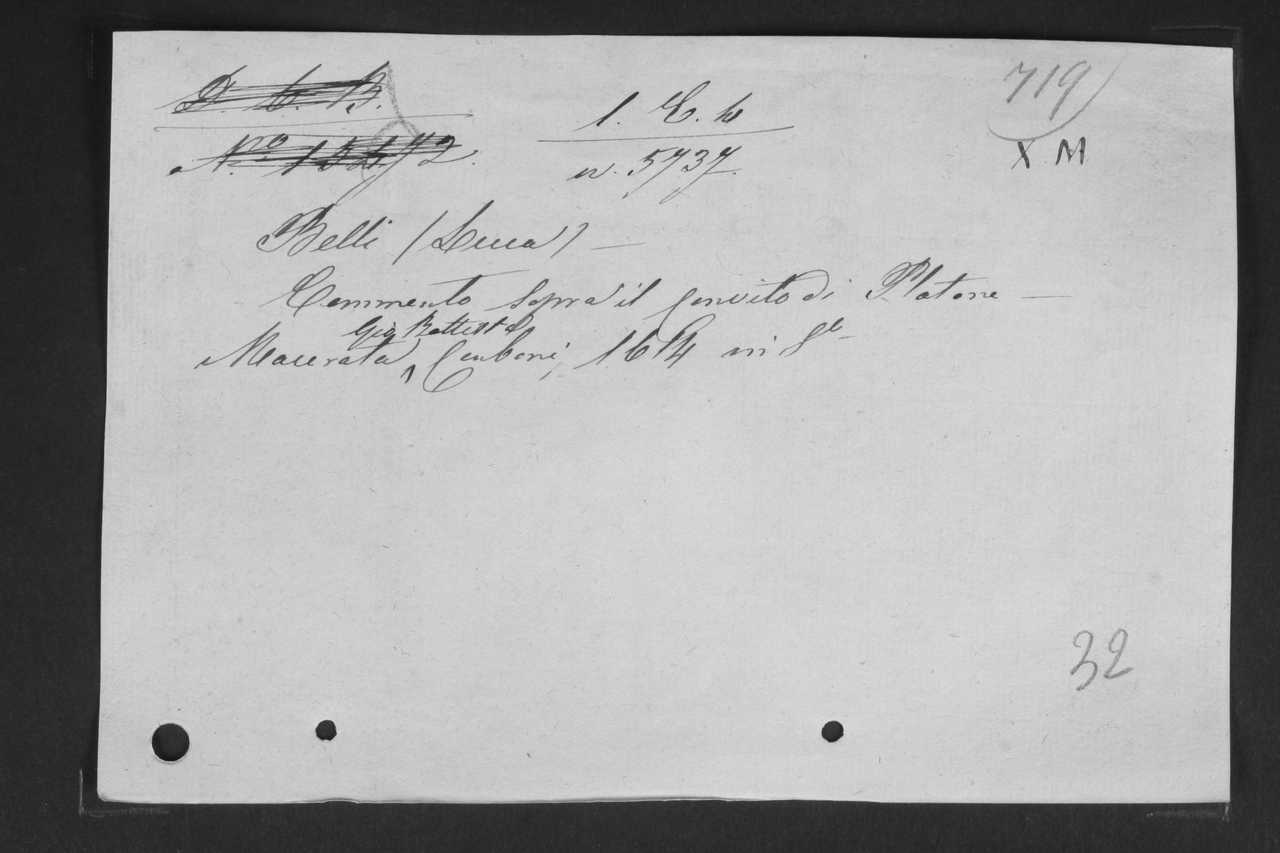 719
X M
D. b. B.
No 15272.
1. E. b
n. 5737.
Belli (Luca) —
Commento sopra il Convito di Platone —
Gio Battista
Macerata, Carboni, 1614 in 8o
32